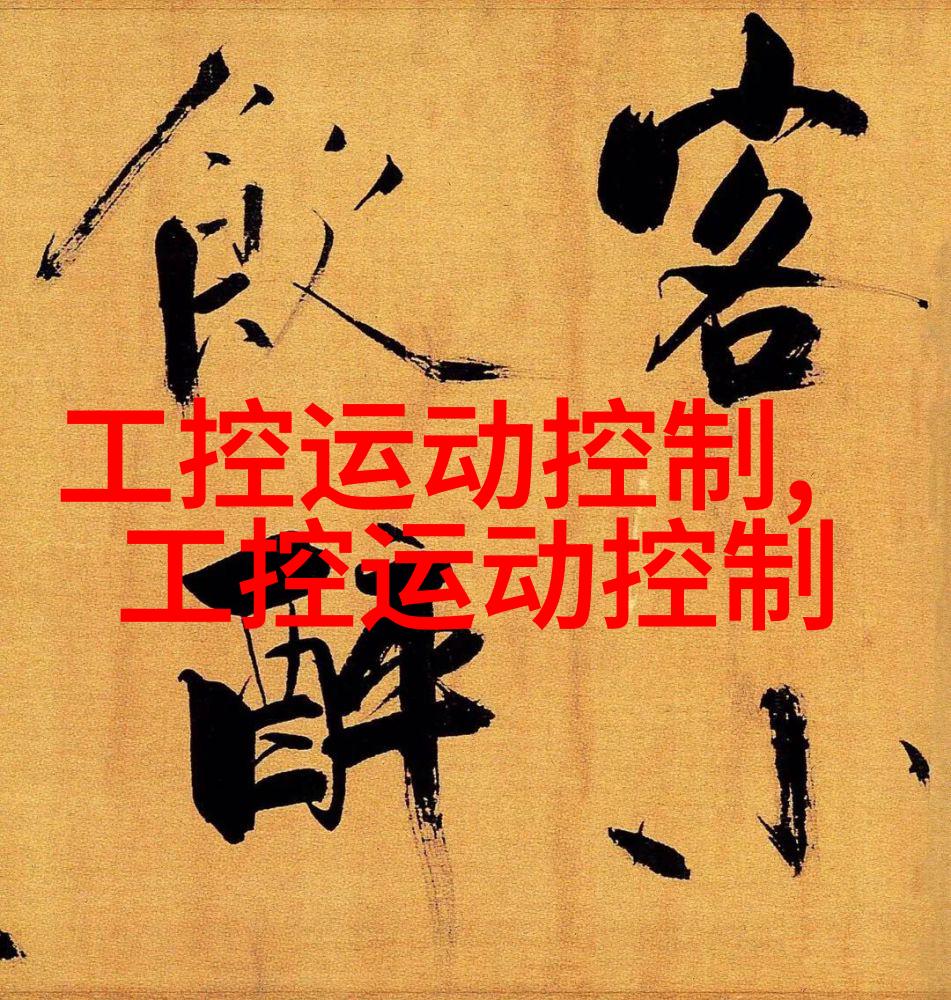 客小
飲醉
工控运动控制,
工控运动控制